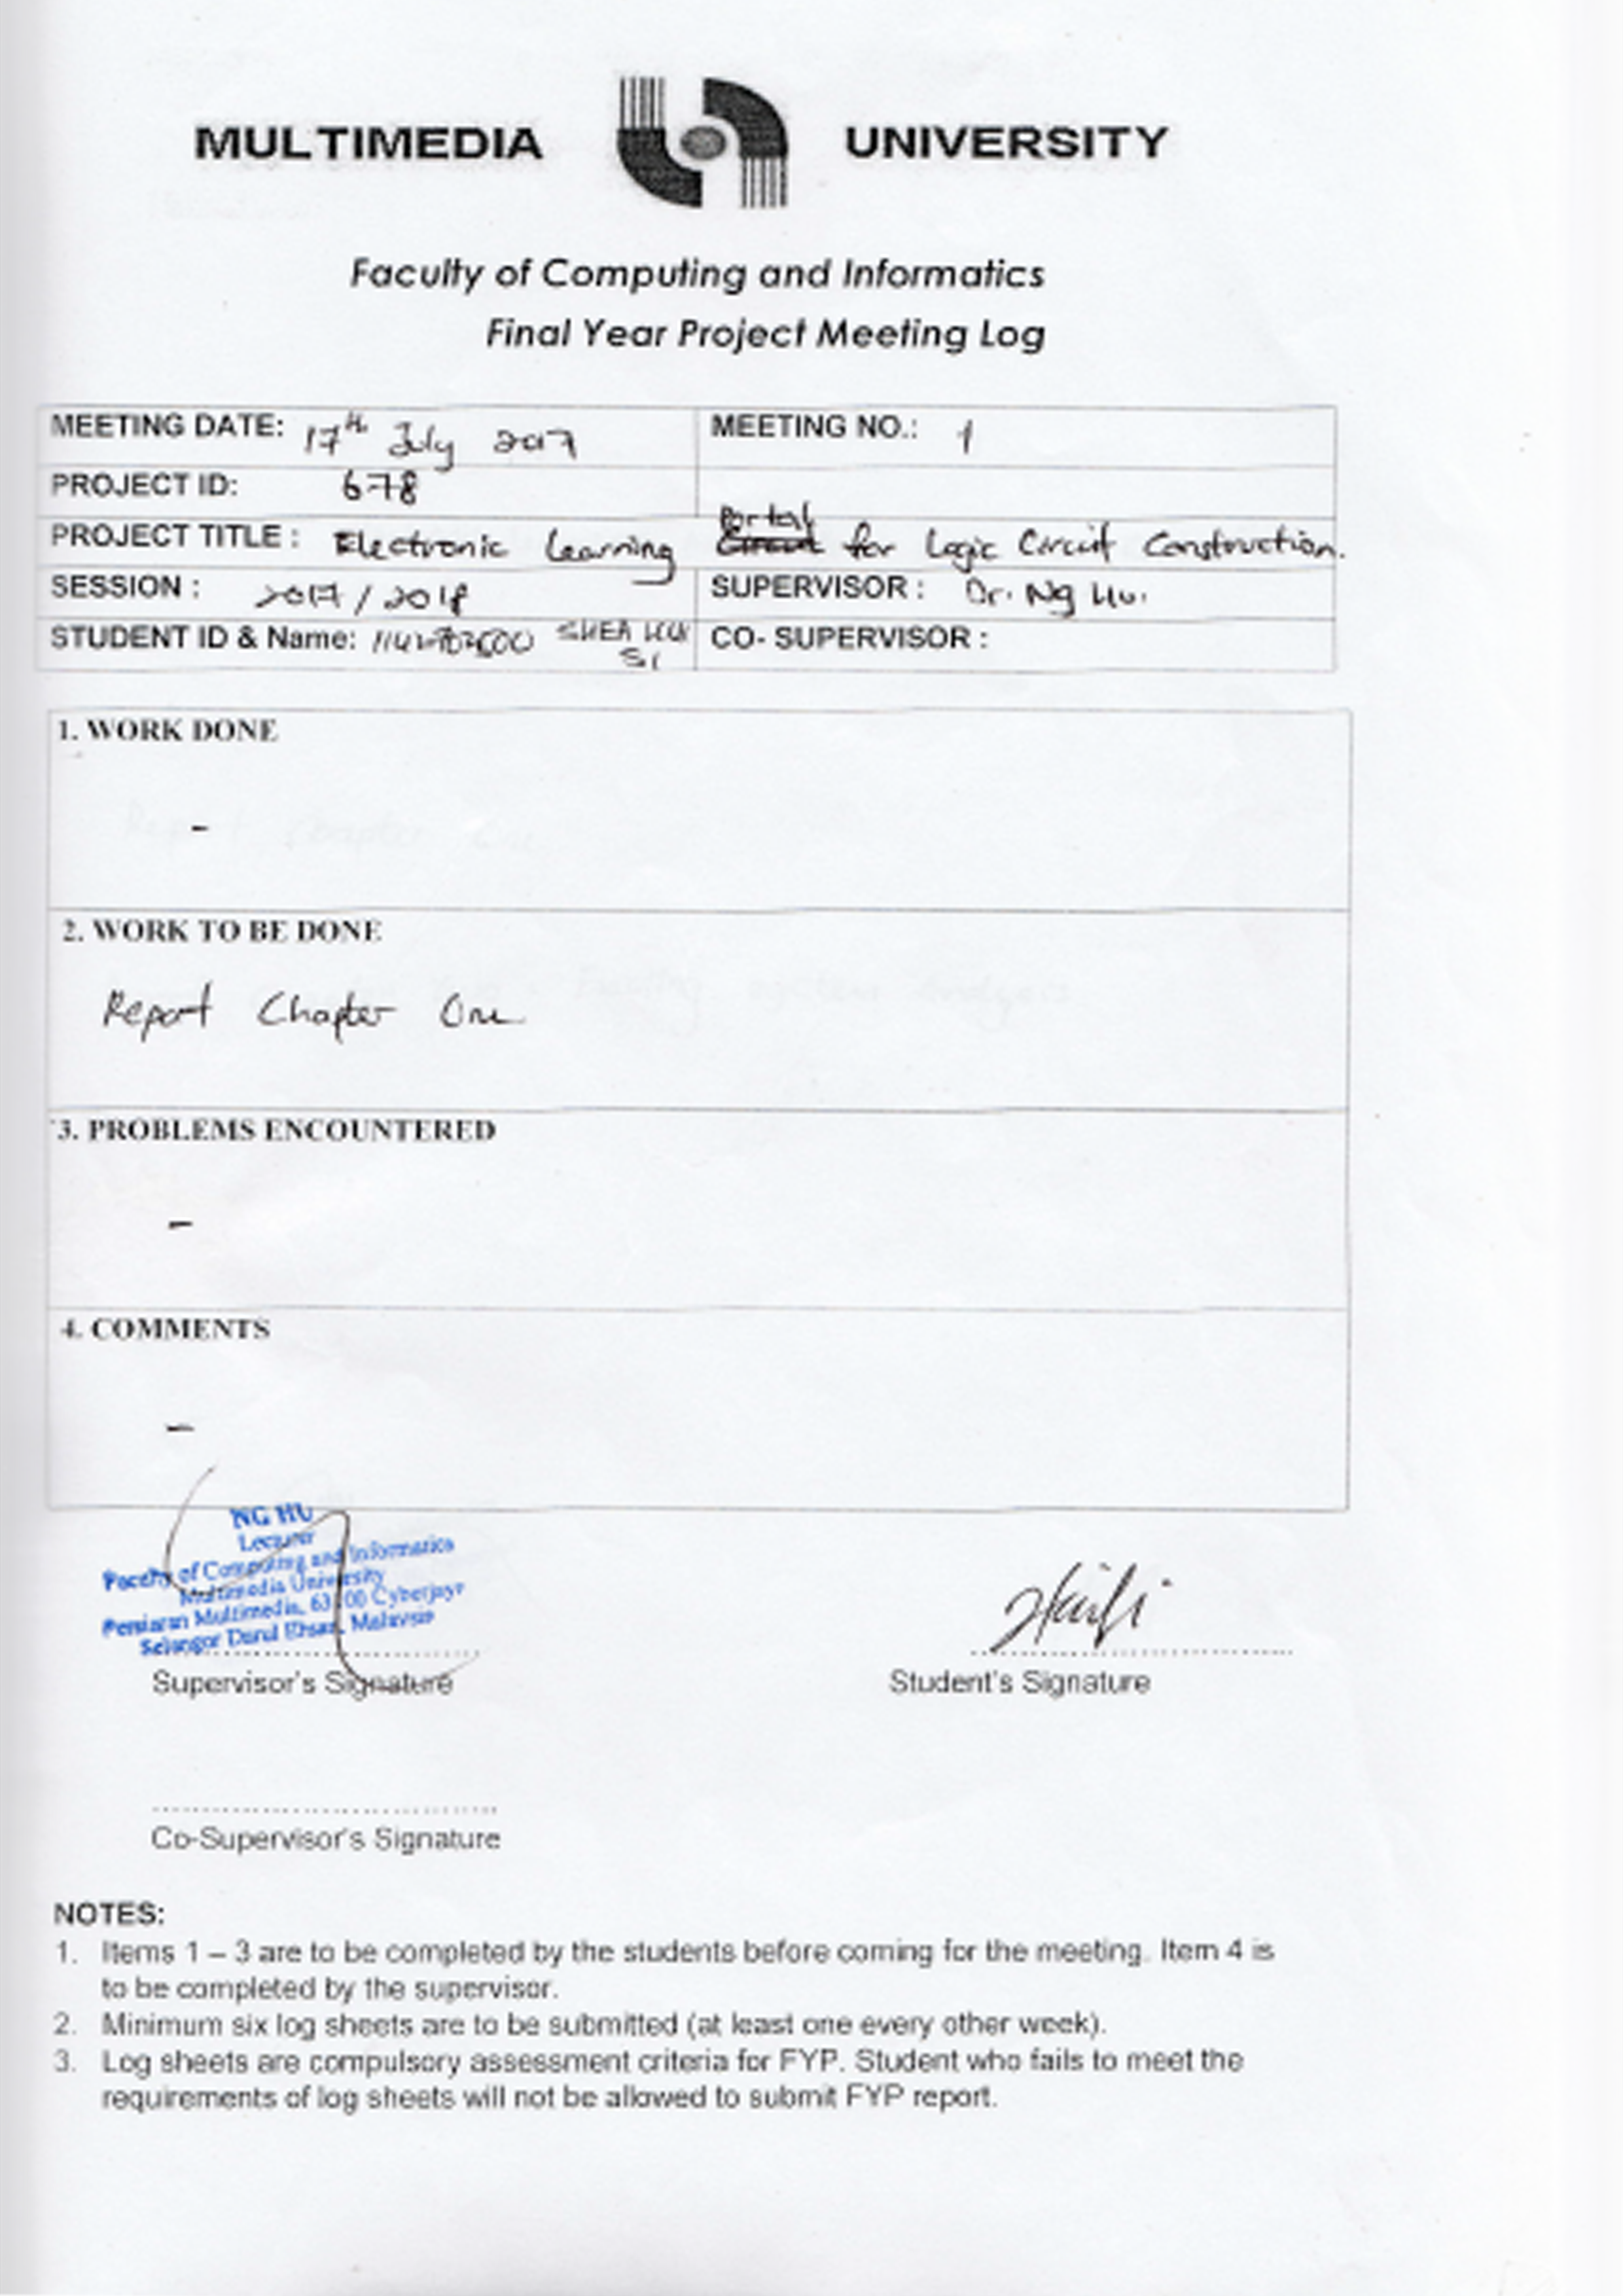 MULTIMEDIA UNIVERSITY
Faculty of Computing and Informatics
Final Year Project Meeting Log
MEETING DATE: 17th July 2017 MEETING NO.: 1
PROJECT ID: 678
PROJECT TITLE : Electronic Learning Portal for Logic Circuit Construction.
SESSION : 2017/2018 SUPERVISOR : Dr. Ng Hu.
STUDENT ID & Name: SHEA CO-SUPERVISOR :
1. WORK DONE
-
2. WORK TO BE DONE
Report Chapter One
3. PROBLEMS ENCOUNTERED
-
4. COMMENTS
-
NG HU
Lecturer
Faculty of Computing and Informatics
Multimedia University
Persiaran Multimedia, 63100 Cyberjaya
Selangor Darul Ehsan, Malaysia
Supervisor's Signature Student's Signature
Co-Supervisor's Signature
NOTES:
1. Items 1 – 3 are to be completed by the students before coming for the meeting. Item 4 is
to be completed by the supervisor.
2. Minimum six log sheets are to be submitted (at least one every other week).
3. Log sheets are compulsory assessment criteria for FYP. Student who fails to meet the
requirements of log sheets will not be allowed to submit FYP report.